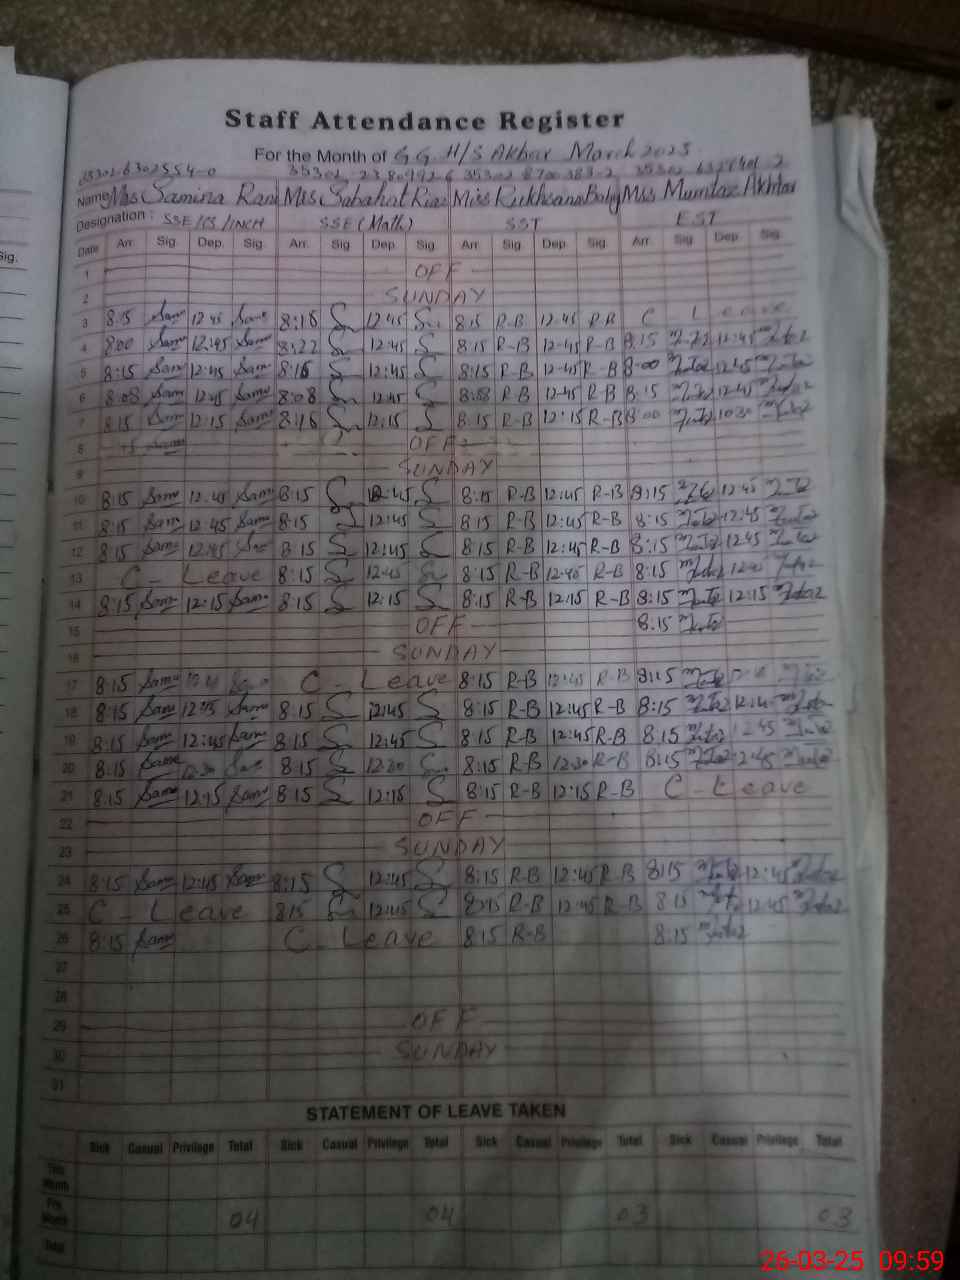 Staff Attendance Register
For the Month of G G H/S Akbar March 2025
35302-6302554-0 35302 35302 8700383-2 35302
Name Mrs Samina Rani Mrs Sabahat Riaz Miss Rukhsana Boby Miss Mumtaz Akhtar
Designation : SSE/CS/INCH SSE (Math) SST EST
Date Arr. Sig. Dep. Sig. Arr. Sig. Dep. Sig. Arr. Sig. Dep. Sig. Arr. Sig. Dep. Sig.
Sig.
1 OFF
2 SUNDAY
3 8:15 Sam 12:45 Sam 8:16 S 12:45 S 8:15 R-B 12:45 R-B C Leave
4 8:00 Sam 12:45 Sam 8:22 S 12:45 S 8:15 R-B 12:45 R-B 8:15 12:45
5 8:15 Sam 12:45 Sam 8:16 S 12:45 S 8:15 R-B 12:45 R-B 8:00 12:45
6 8:08 Sam 12:45 Sam 8:08 S 12:45 S 8:08 R-B 12:45 R-B 8:15 12:45
7 8:15 Sam 12:15 Sam 8:16 S 12:15 S 8:15 R-B 12:15 R-B 8:00 10:30
8 OFF
9 SUNDAY
10 8:15 Sam 12:45 Sam 8:15 S 12:45 S 8:15 R-B 12:45 R-B 8:15 12:45
11 8:15 Sam 12:45 Sam 8:15 S 12:45 S 8:15 R-B 12:45 R-B 8:15 12:45
12 8:15 Sam 12:45 Sam 8:15 S 12:45 S 8:15 R-B 12:45 R-B 8:15 12:45
13 C - Leave 8:15 S 12:45 S 8:15 R-B 12:45 R-B 8:15 12:45
14 8:15 Sam 12:15 Sam 8:15 S 12:15 S 8:15 R-B 12:15 R-B 8:15 12:15
15 OFF 8:15
16 SUNDAY
17 8:15 Sam C - Leave 8:15 R-B 12:45 R-B 8:15
18 8:15 Sam 12:45 Sam 8:15 S 12:45 S 8:15 R-B 12:45 R-B 8:15 12:45
19 8:15 Sam 12:45 Sam 8:15 S 12:45 S 8:15 R-B 12:45 R-B 8:15 12:45
20 8:15 Sam 12:30 Sam 8:15 S 12:30 S 8:15 R-B 12:30 R-B 8:15 12:45
21 8:15 Sam 12:15 Sam 8:15 S 12:15 S 8:15 R-B 12:15 R-B C - Leave
22 OFF
23 SUNDAY
24 8:15 Sam 12:45 Sam 8:15 S 12:45 S 8:15 R-B 12:45 R-B 8:15 12:45
25 C - Leave 8:15 S 12:45 S 8:15 R-B 12:45 R-B 8:15 12:45
26 8:15 Sam C - Leave 8:15 R-B 8:15
27
28
29 OFF
30 SUNDAY
31
STATEMENT OF LEAVE TAKEN
Sick Casual Privilege Total Sick Casual Privilege Total Sick Casual Privilege Total Sick Casual Privilege Total
This Month
Pre Month 04 04 03 03
Total
26-03-25 09:59